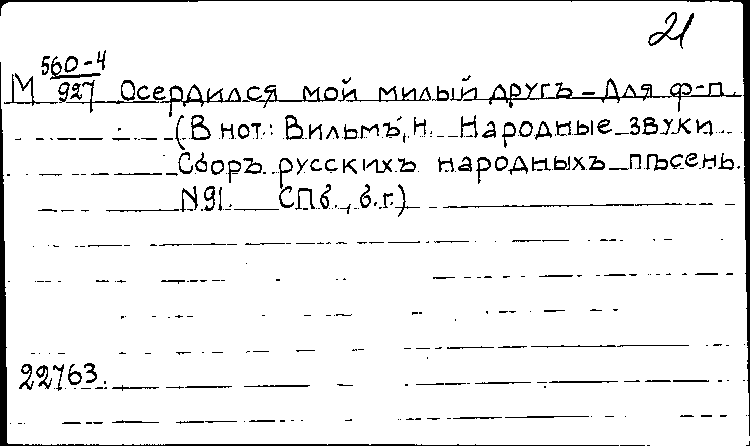 21
М 560-4/927 Осердился мой милый другъ - Для ф-п.
(В нот: Вильмъ, Н. Народные звуки
Сборъ русскихъ народныхъ пѣсень.
N 91. СПб., б.г.)
22763.